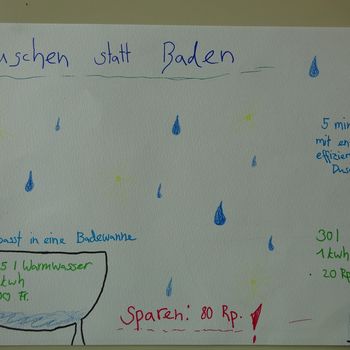 uschen statt Baden
5 min
mit en
effizie
Dus
passt in eine Badewanne
5 l Warmwasser
kwh
00 Fr.
30l
1 kwh
20 Rp
Sparen: 80 Rp.!